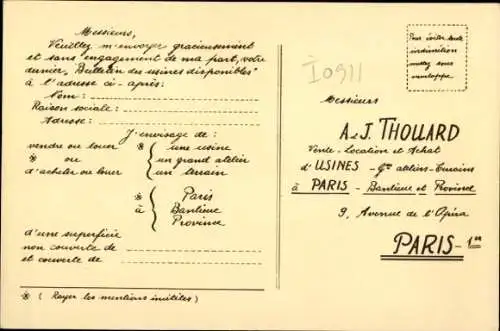 Messieurs,
Veuillez m'envoyer gracieusement
et sans engagement de ma part, votre
dernier "Bulletin des usines disponibles"
à l'adresse ci-après:
Nom:
Raison sociale:
Adresse:
J'envisage de:
vendre ou louer ※ { une usine
※ ou un grand atelier
d'acheter ou louer un terrain
※ { Paris
à Banlieue
Province
d'une superficie
non couverte de
et couverte de
※ ( Rayer les mentions inutiles )
Pour éviter toute
indiscrétion
mettez sous
enveloppe
I0911
Messieurs
A & J. THOUARD
Vente - Location et Achat
d'USINES - Gds ateliers - Terrains
à PARIS - Banlieue et Province
9, Avenue de l'Opéra
PARIS - 1er